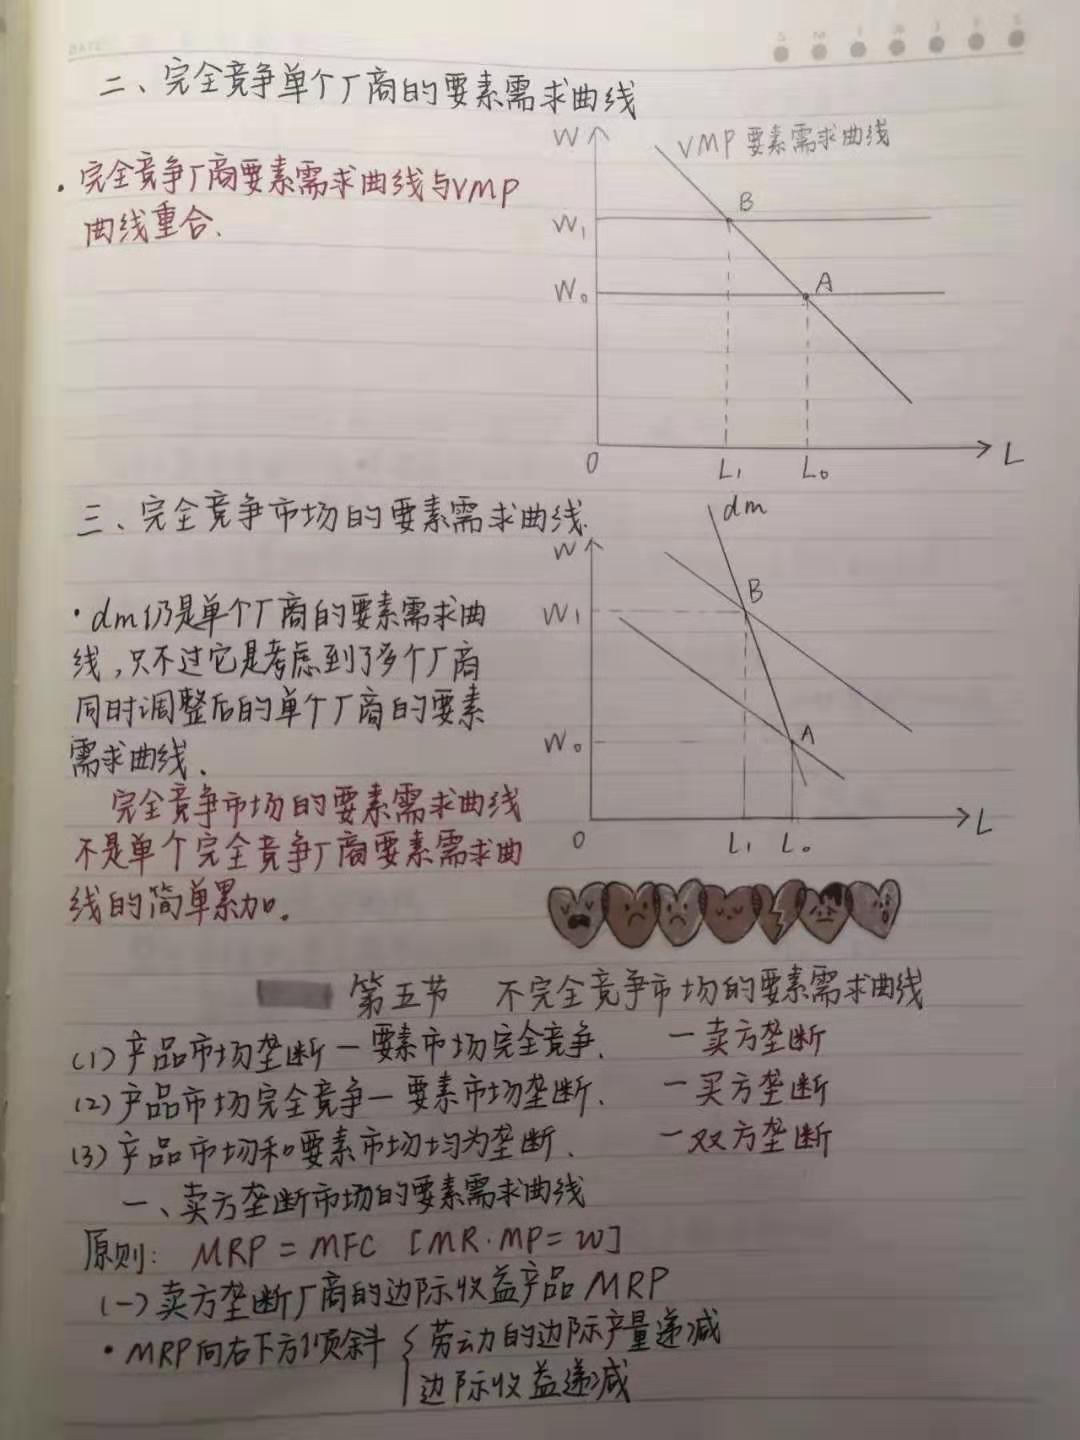 二、完全竞争单个厂商的要素需求曲线
·完全竞争厂商要素需求曲线与VMP
曲线重合.
W
VMP 要素需求曲线
B
W₁
A
W₀
O
L₁
L₀
L
三、完全竞争市场的要素需求曲线.
dm
W
·dm仍是单个厂商的要素需求曲
线,只不过它是考虑到了多个厂商
同时调整后的单个厂商的要素
需求曲线、
B
W₁
W₀
A
O
L₁
L₀
L
完全竞争市场的要素需求曲线
不是单个完全竞争厂商要素需求曲
线的简单累加。
第五节 不完全竞争市场的要素需求曲线
(1)产品市场垄断—要素市场完全竞争、 —卖方垄断
(2)产品市场完全竞争—要素市场垄断、 —买方垄断
(3)产品市场和要素市场均为垄断、 —双方垄断
一、卖方垄断市场的要素需求曲线
原则: MRP=MFC [MR·MP=W]
(一)卖方垄断厂商的边际收益产品MRP
·MRP向右下方倾斜{劳动的边际产量递减
边际收益递减